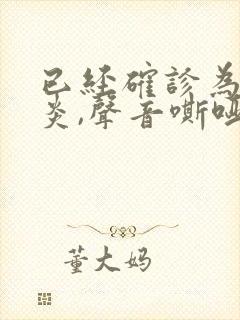 已經確診為
炎,聲音嘶啞
董大妈